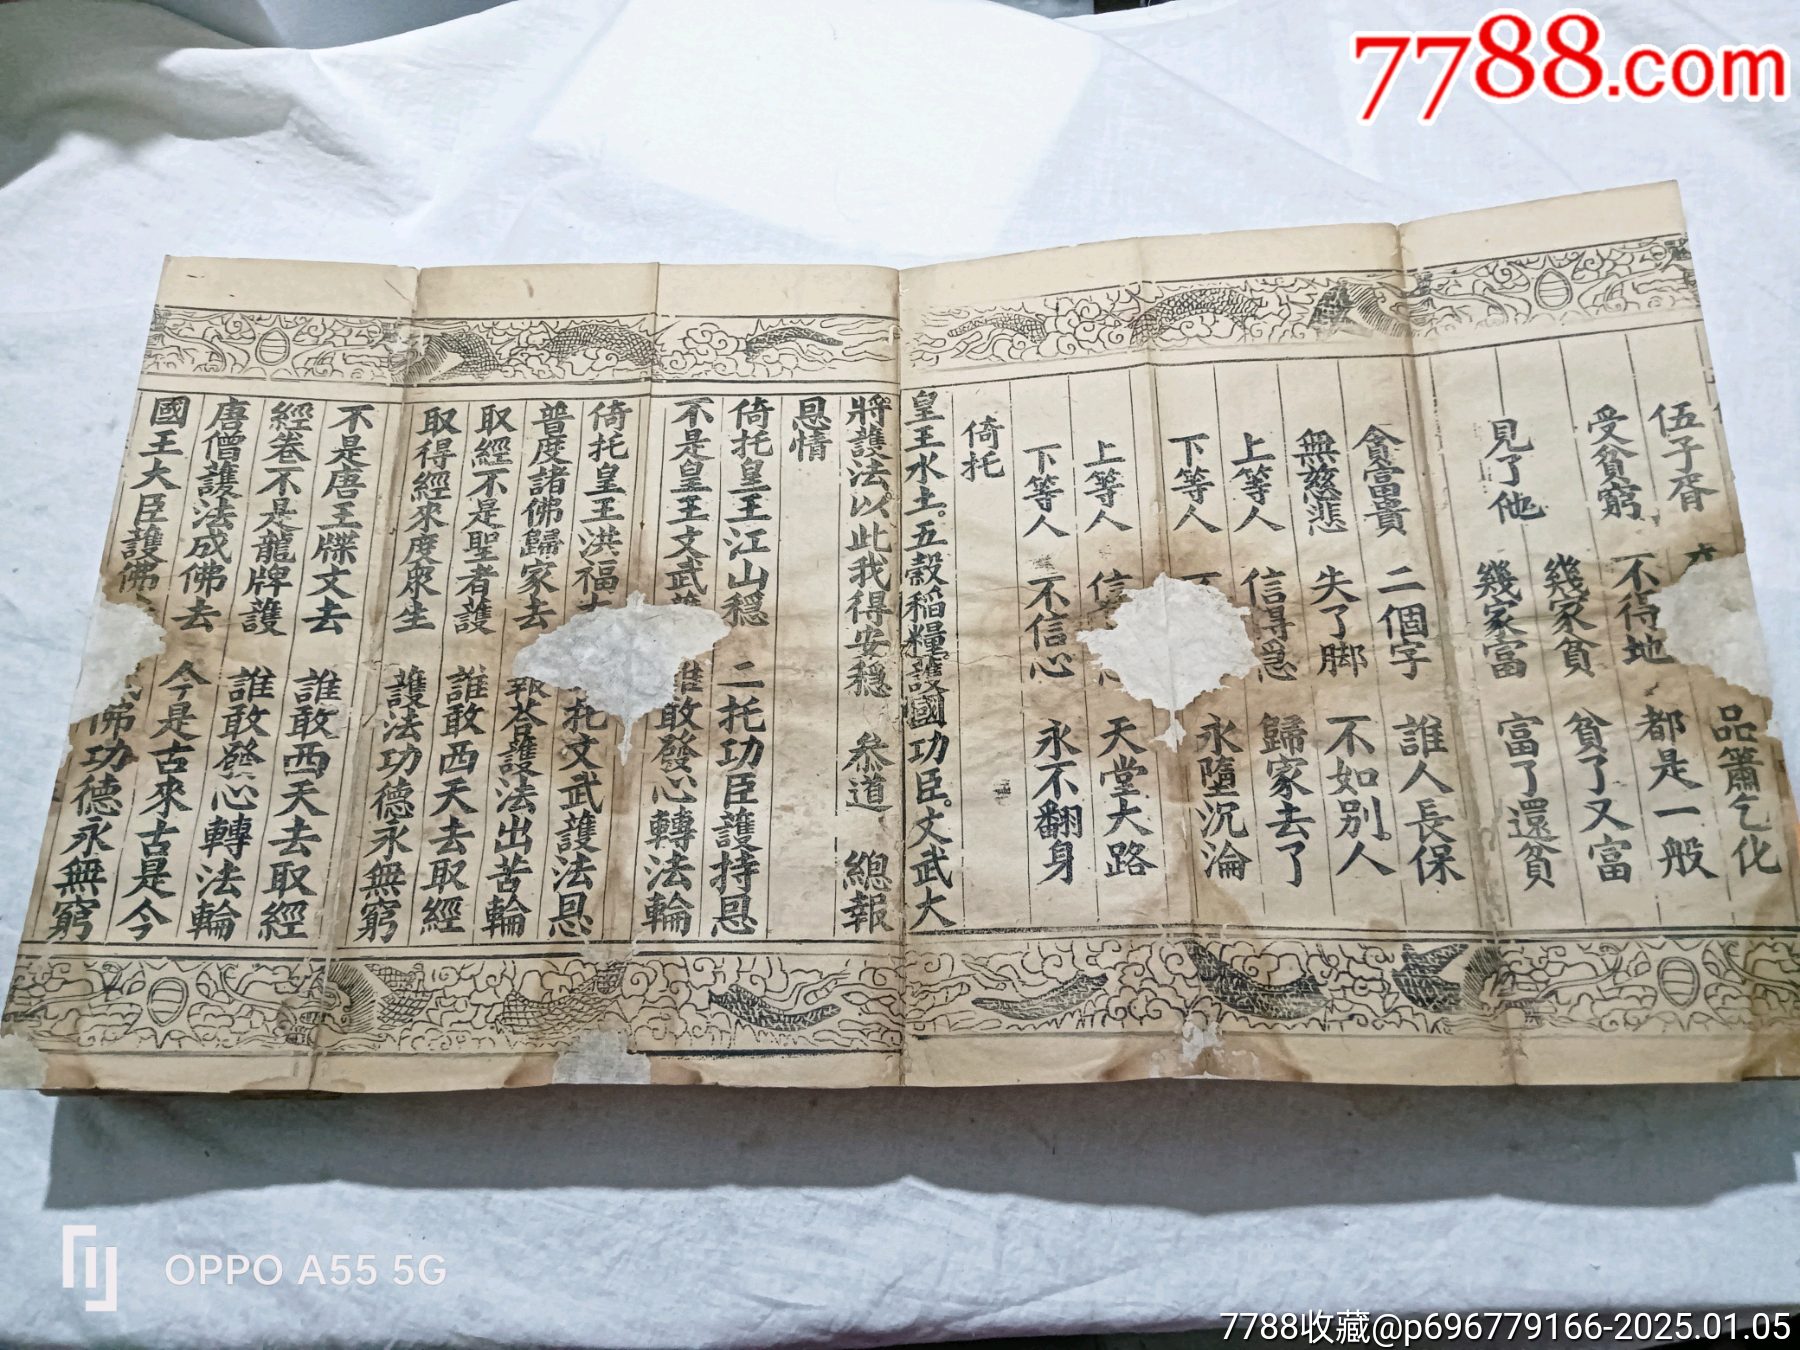 7788.com
品簫乞化
伍子胥 不待地 都是一般
受貧窮 幾家貧 貧了又富
見了他 幾家富 富了還貧
貪富貴 二個字 誰人長保
無慈悲 失了脚 不如别人
上等人 信得急 歸家去了
下等人 永墮沉淪
上等人 信 天堂大路
下等人 不信心 永不翻身
倚托
皇王水土。五穀稻糧護國功臣。文武大
將護法以此我得安穩 叅道 總報
恩情
倚托皇王江山穩 二托功臣護持恩
不是皇王文武護 誰敢發心轉法輪
倚托皇王洪福 托文武護法恩
普度諸佛歸家去 報荅護法出苦輪
取經不是聖者護 誰敢西天去取經
取得經來度衆生 護法功德永無窮
不是唐王牒文去 誰敢西天去取經
經卷不是龍牌護 誰敢發心轉法輪
唐僧護法成佛去 今是古來古是今
國王大臣護佛 佛功德永無窮
OPPO A55 5G
7788收藏@p696779166-2025.01.05